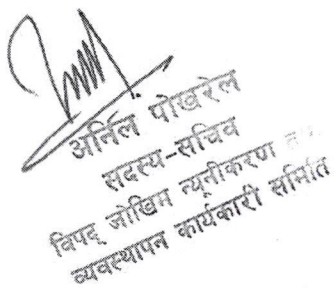 अर्निल पोखरेल
सदस्य-सचिव
विपद् जोखिम न्यूनीकरण
व्यवस्थापन कार्यकारी समिति